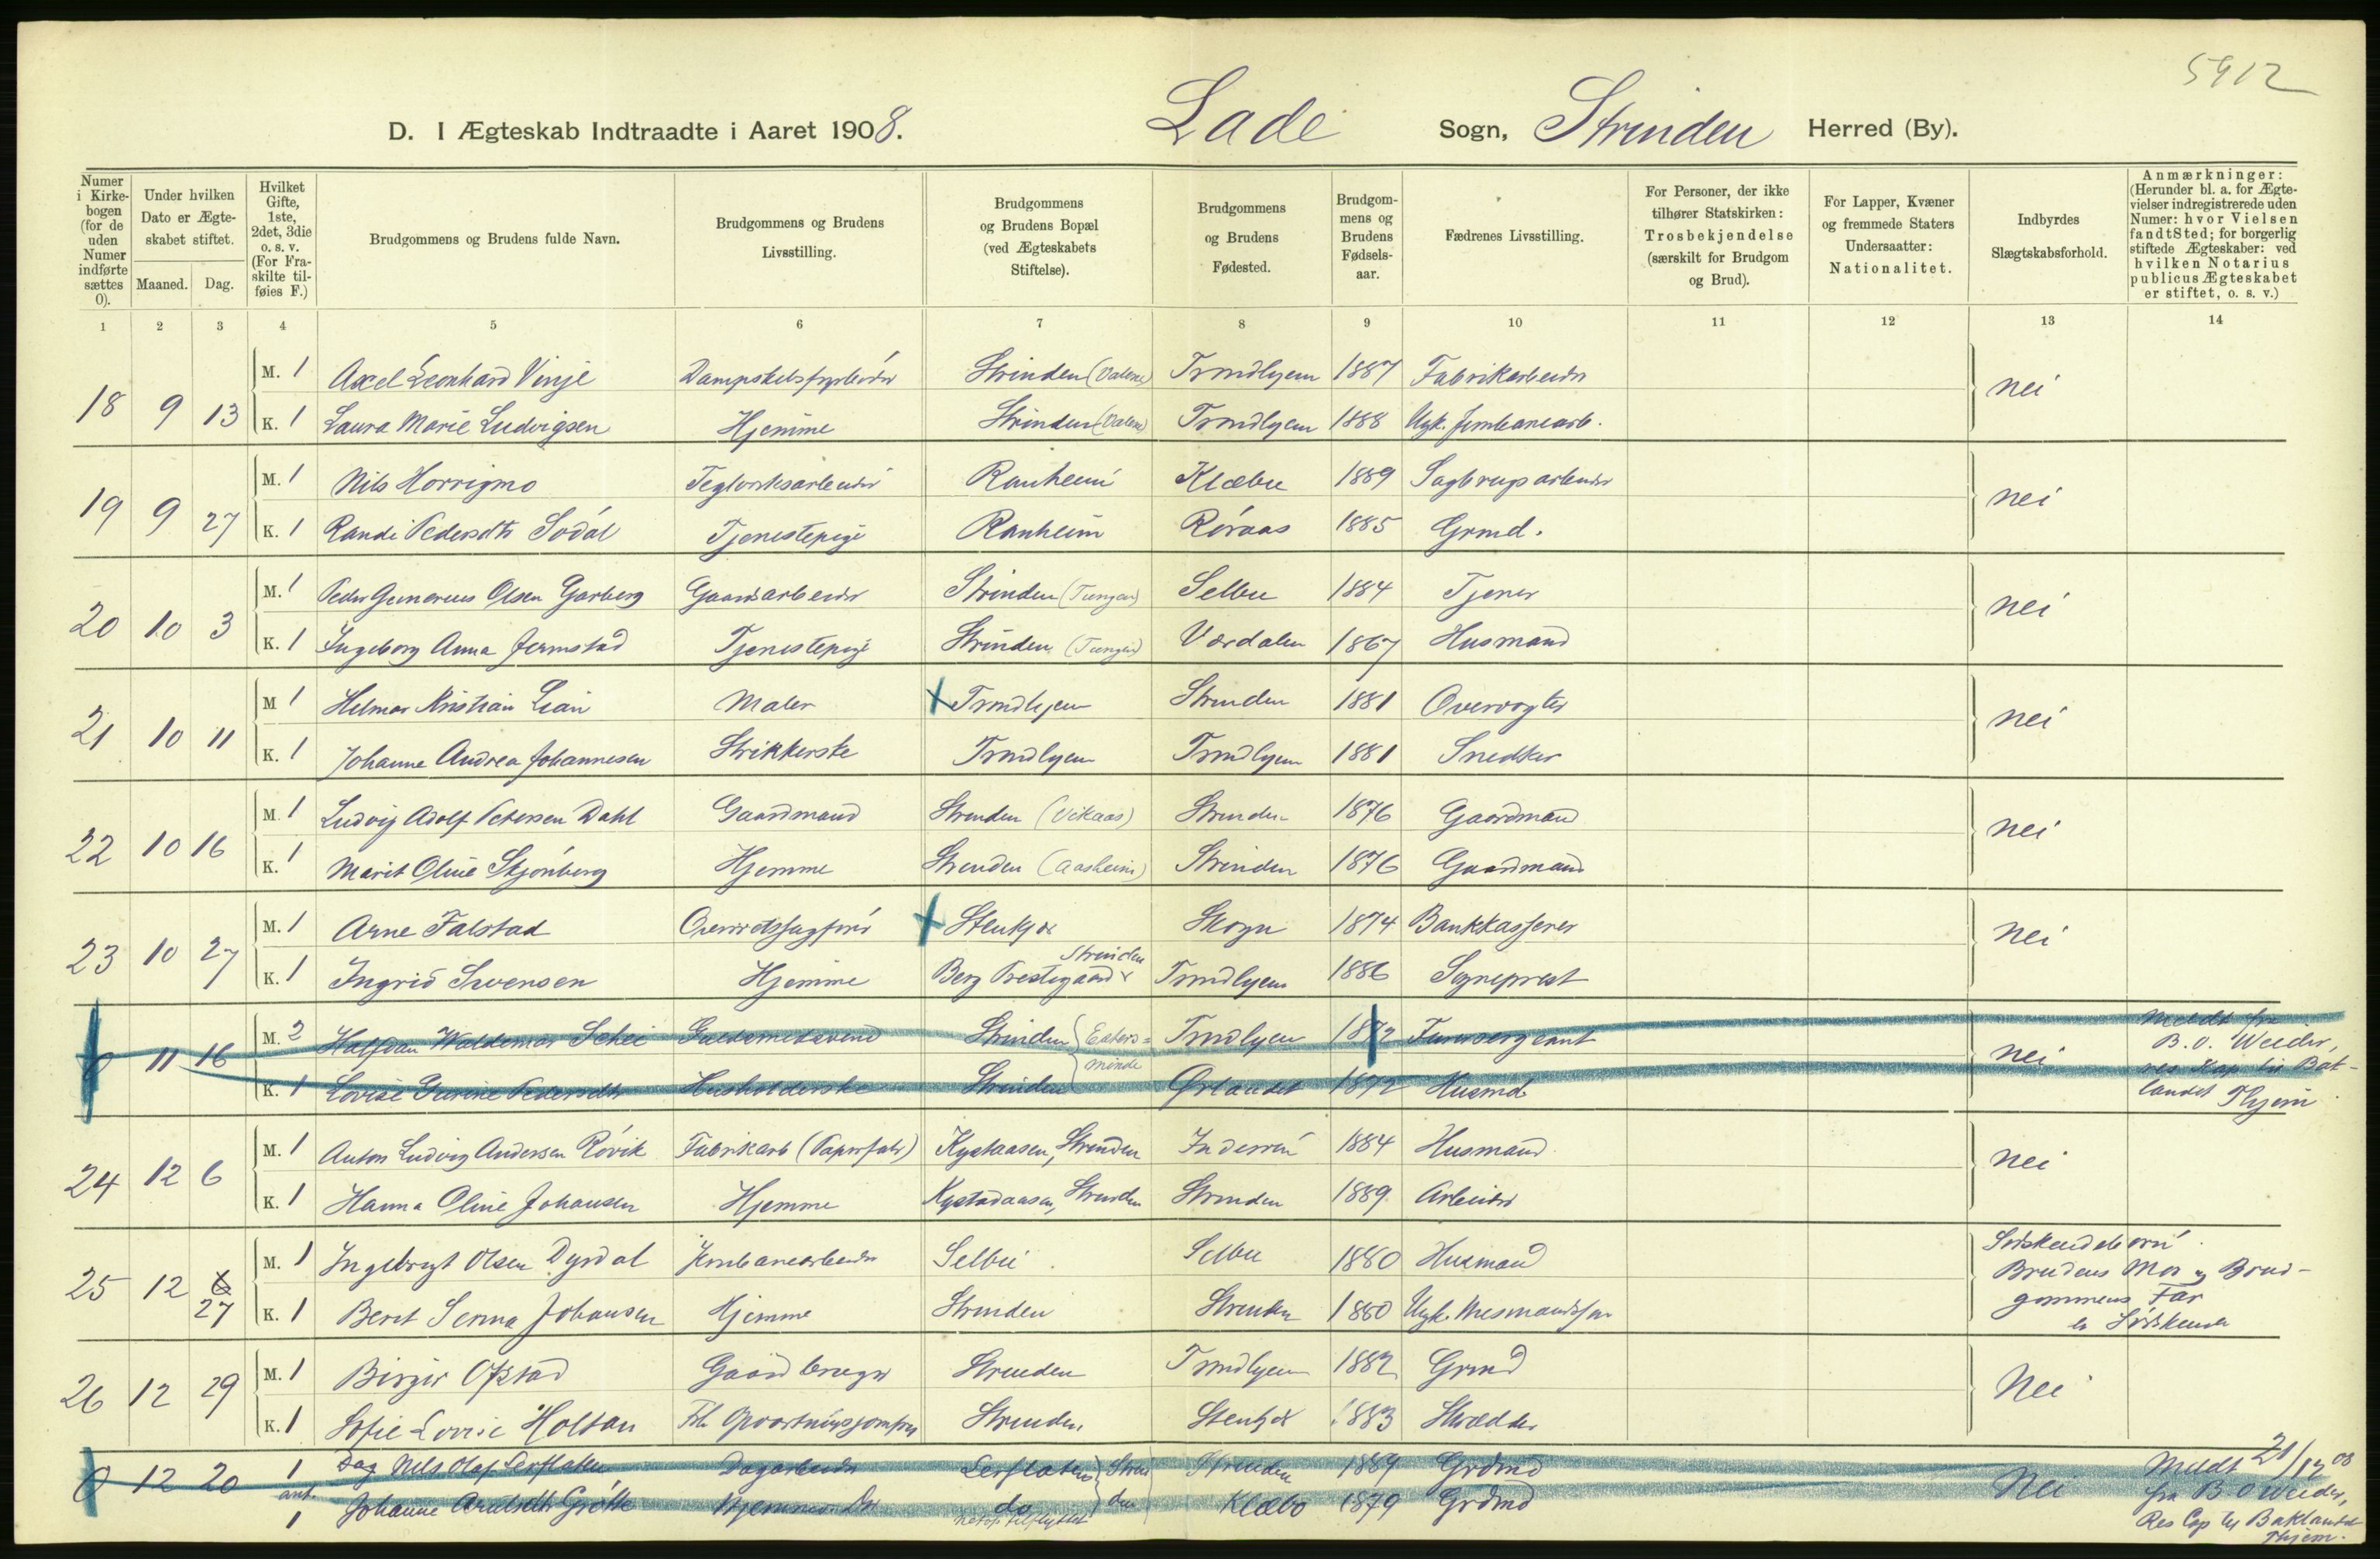 5912
D. I Ægteskab Indtraadte i Aaret 1908. Lade Sogn, Strinden Herred (By).
Numer i Kirkebogen (for de uden Numer indførte sættes 0).
Under hvilken Dato er Ægteskabet stiftet.
Maaned. Dag.
Hvilket Gifte, 1ste, 2det, 3die o. s. v. (For Fraskilte tilføies F.)
Brudgommens og Brudens fulde Navn.
Brudgommens og Brudens Livsstilling.
Brudgommens og Brudens Bopæl (ved Ægteskabets Stiftelse).
Brudgommens og Brudens Fødested.
Brudgommens og Brudens Fødselsaar.
Fædrenes Livsstilling.
For Personer, der ikke tilhører Statskirken: Trosbekjendelse (særskilt for Brudgom og Brud).
For Lapper, Kvæner og fremmede Staters Undersaatter: Nationalitet.
Indbyrdes Slægtskabsforhold.
Anmærkninger: (Herunder bl. a. for Ægtevielser indregistrerede uden Numer: hvor Vielsen fandt Sted; for borgerlig stiftede Ægteskaber: ved hvilken Notarius publicus Ægteskabet er stiftet, o. s. v.)
1 2 3 4 5 6 7 8 9 10 11 12 13 14
18 9 13 M. 1 Axel Leonhard Vinje Strinden Trondhjem 1887 Fabrikarbeider nei
K. 1 Laura Marie Ludvigsen Hjemme Strinden Trondhjem 1888 Ugk. Jernbanearb.
19 9 27 M. 1 Nils Horrigmo Teglverksarbeider Ranheim Klæbu 1889 Sagbrugsarbeider nei
K. 1 Randi Pedersdtr Sødal Tjenestepige Ranheim Røraas 1885 Grmd.
20 10 3 M. 1 Peder Olsen Garberg Gaardsarbeider Strinden (Tungen) Selbu 1884 Tjener nei
K. 1 Ingeborg Anna Jermstad Tjenestepige Strinden (Tungen) Værdalen 1867 Husmand
21 10 11 M 1 Helmer Kristian Lian Maler Trondhjem Strinden 1881 nei
K. 1 Johanne Andrea Johannesen Strikkerske Trondhjem Trondhjem 1881 Snedker
22 10 16 M. 1 Ludvig Adolf Petersen Dahl Gaardmand Strinden (Vikaas) Strinden 1876 Gaardmand nei
K. 1 Marit Oline Stjønberg Hjemme Strinden (Aasheim) Strinden 1876 Gaardmand
23 10 27 M. 1 Arne Falstad Overretssagfører Stenkjær Skogn 1874 Bankkasserer nei
K. 1 Ingrid Svensen Hjemme Berg Prestegaard Strinden Trondhjem 1886 Sogneprest
0 11 16 M. 2 Halfdan Waldemar Schei Strinden Trondhjem 1872 nei Meldt fra
B. O. Weider,
res Kap til Bak-
landet Thjem
K. 1 Lovise Pedersdtr Husholderske Strinden Ørlandet 1872 Husmd
24 12 6 M. 1 Anton Ludvig Andersen Røvik Fabrikarb (Papirfabr) Strinden Inderøen 1884 Husmand nei
K. 1 Hanna Oline Johansen Hjemme Strinden Strinden 1889 Arbeider
25 12 6 27 M. 1 Ingebrigt Olsen Dyrdal Jernbanearbeider Selbu Selbu 1880 Husmand Søskendebørn
Brudens Mor og Brud-
gommens Far
er Søskende
K. 1 Berit Serina Johansen Hjemme Strinden Strinden 1880
26 12 29 M. 1 Birger Opstad Gaardbruger Strinden Trondhjem 1882 Grmd Nei
K. 1 Sofie Lovise Holtan Frh. Opvartningsjomfru Strinden Stenkjær 1883 Skrædder
0 12 20 1 Dag Nils Olaf Lerflaten Dagarbeider Lerflaten Strinden Strinden 1884 Grdmd Nei Meldt 21/12 08
fra B O Weider,
Res Cap til Baklandet
Thjem.
ant. 1 Johanne Arntsdtr Grøtte Hjemmev. Dtr do netop tilflyttet Klæbo 1879 Grdmd